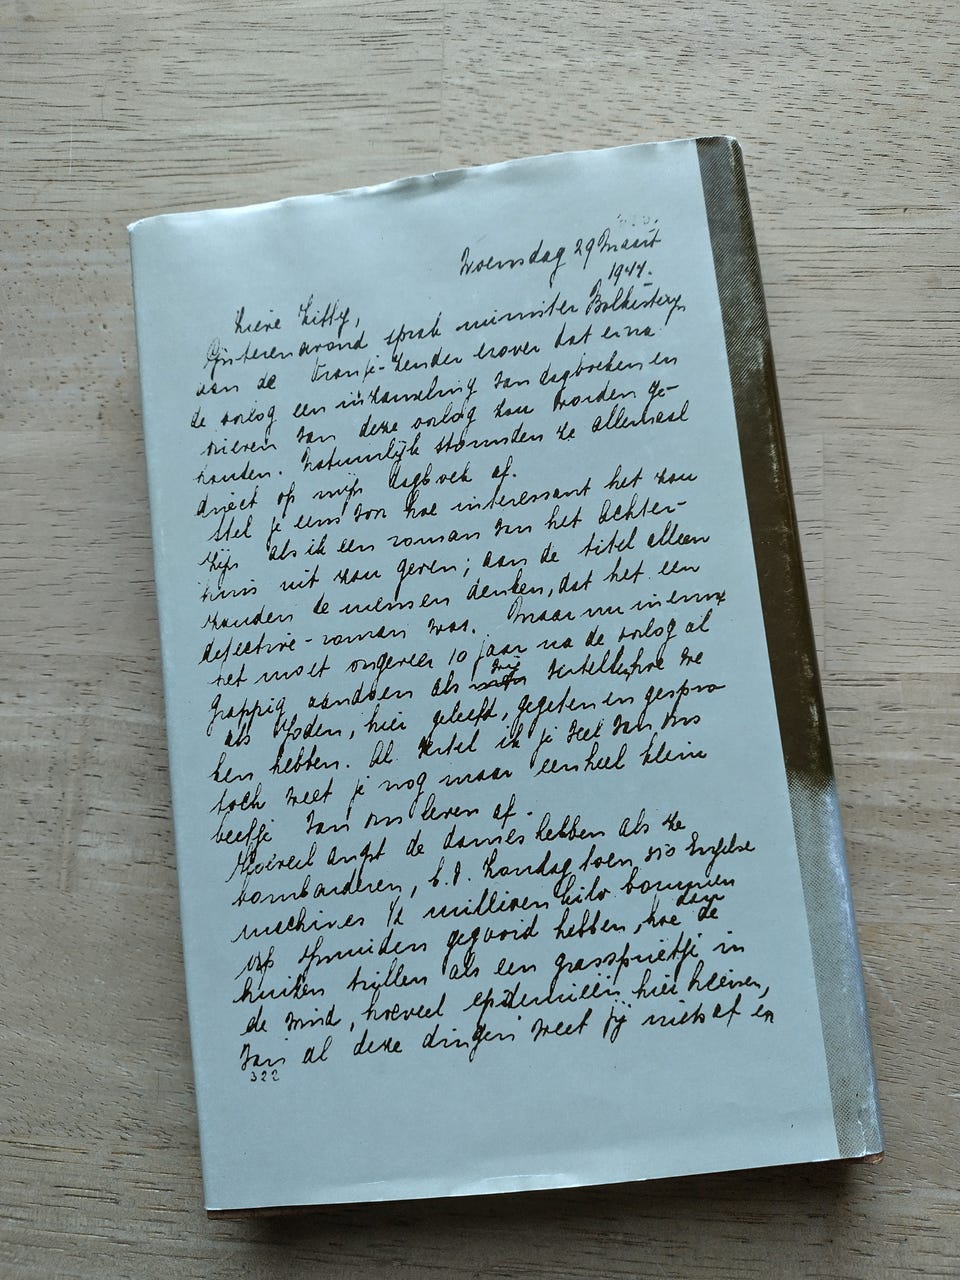 Woensdag 29 Maart
1944.
Lieve Kitty,
Gisterenavond sprak minister Bolkesteyn
aan de Oranje-zender erover dat er na
de oorlog een inzameling van dagboeken en
brieven van deze oorlog zou worden ge-
houden. Natuurlijk stormden ze allemaal
direct op mijn dagboek af.
Stel je eens voor hoe interessant het zou
zijn als ik een roman van het Achter-
huis uit zou geven; aan de titel alleen
zouden de mensen denken, dat het een
detective-roman was. Maar nu in ernst
het moet ongeveer 10 jaar na de oorlog al
grappig aandoen als wij vertellen hoe we
als Joden, hier geleefd, gegeten en gespro
ken hebben. Al vertel ik je veel van ons
toch weet je nog maar een heel klein
beetje van ons leven af.
Hoeveel angst de dames hebben als ze
bombarderen, b.v. Zondag toen 350 Engelse
machines ½ millioen kilo bommen
op Ijmuiden gegooid hebben, hoe dan de
huizen trillen als een grassprietje in
de wind, hoeveel epidemieën hier heersen,
Van al deze dingen weet jij niets af en
322